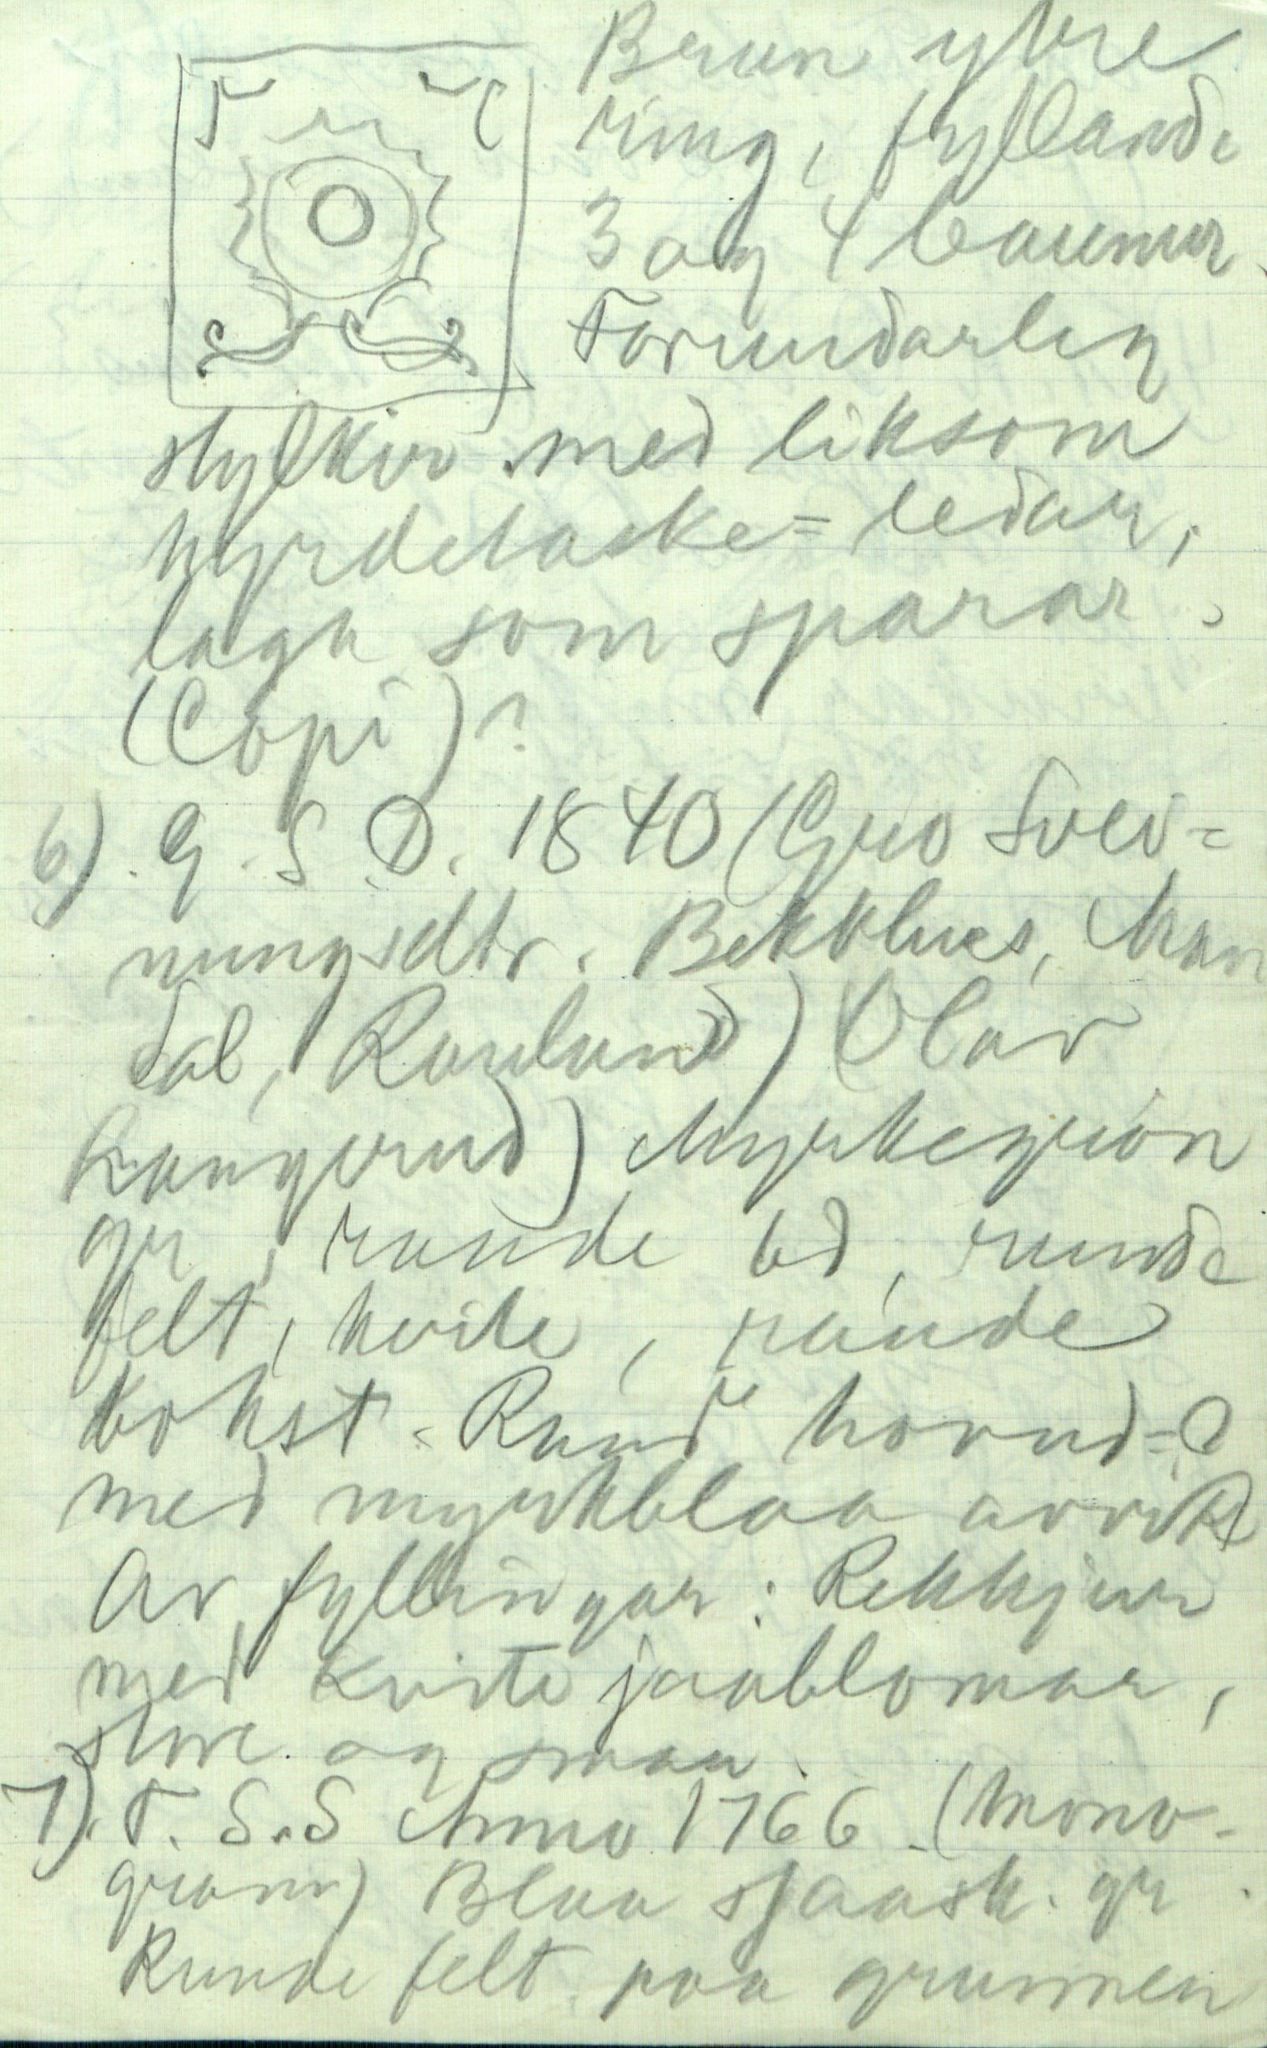 Brun ytre
ring, fyllande
3 og 4
Forundarleg
stylkir med liksom
hyrdetaske=ledar,
lagt som sparar.
(Copi)?
6). G. S. D. 1840 (Gro Svei=
nungsdtr. Bekkhus, Møs
dal, Rauland) (Olav
Rangerud) Myrkegrøn
gr, raude bd, runde
felt, kvite, raude
bokst. Raud hovud=
med myrkblaa
Av fyllingar: Rekkjur
med kvite jaablomar,
store og smaa.
7). T. S. S Anno 1766. (Mono-
gram) Blaa sjaask. gr.
Runde felt paa grunnen